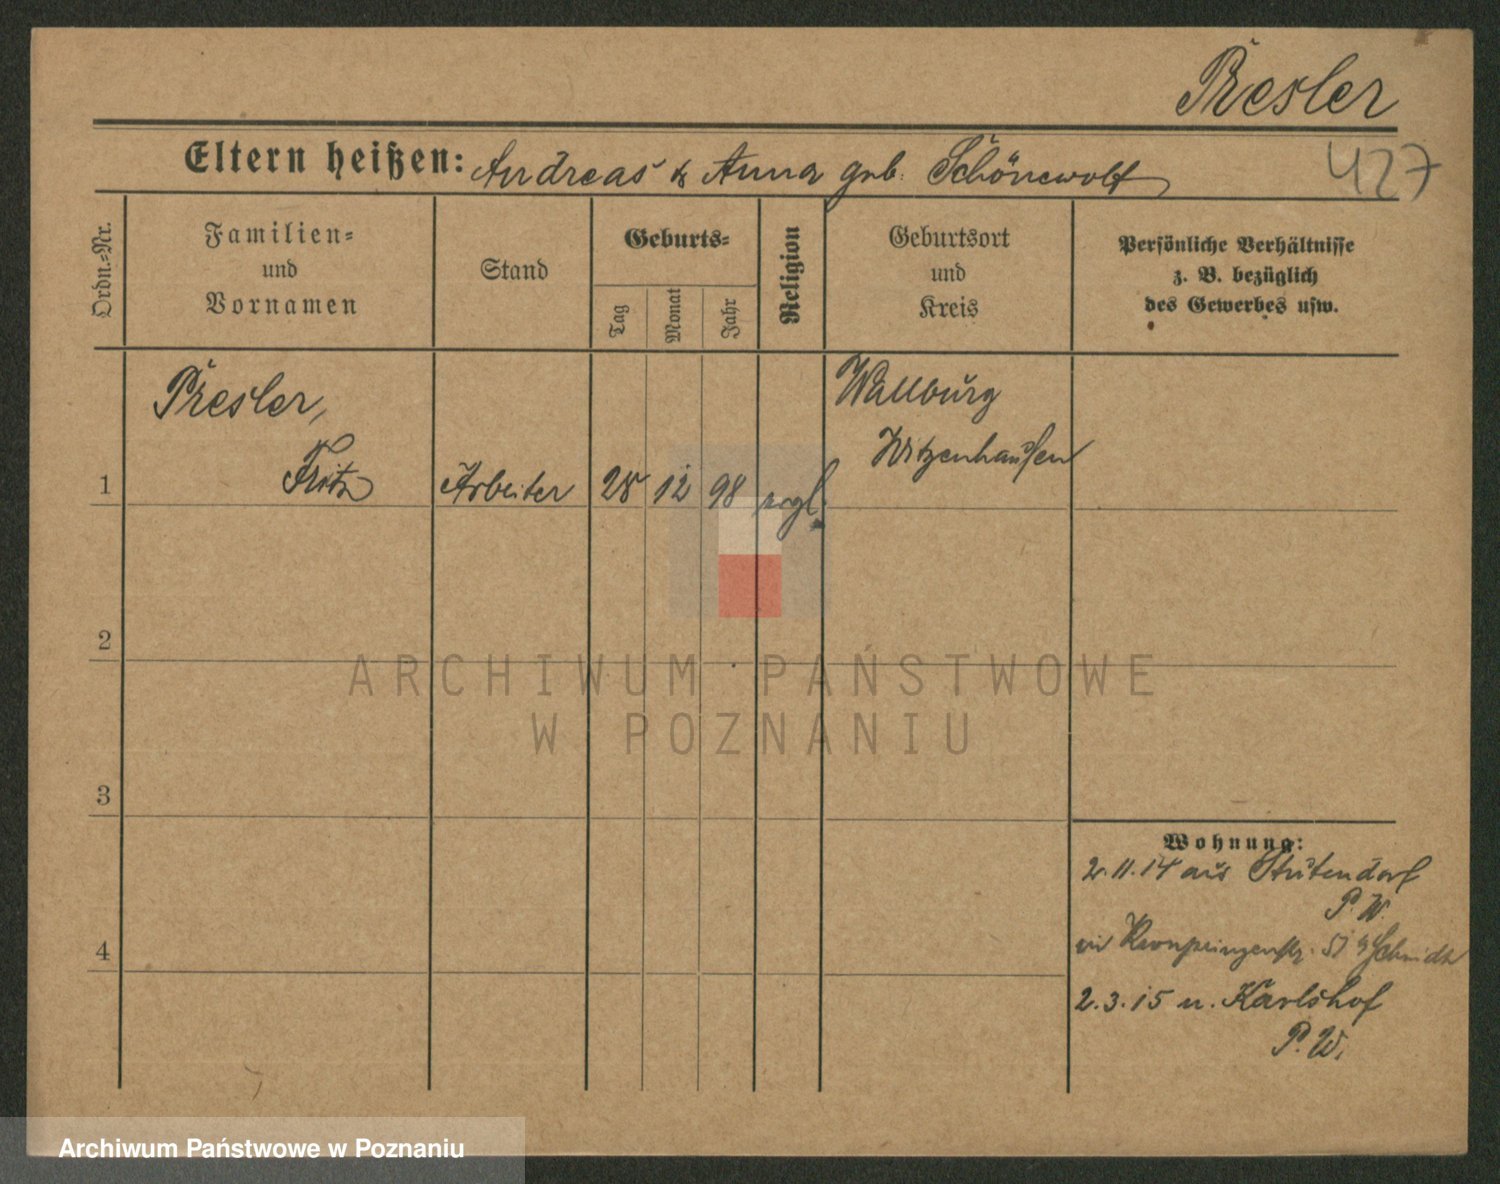 Presler
Eltern heißen: Andreas & Anna geb. Schönewolf
427
Ordn.-Nr.
Familien-
und
Vornamen
Stand
Geburts-
Tag
Monat
Jahr
Religion
Geburtsort
und
Kreis
Persönliche Verhältnisse
z. B. bezüglich
des Gewerbes usw.
Presler,
Fritz
Arbeiter
28
12
98
evgl.
Wallburg
Witzenhausen
1
2
3
4
Wohnung:
2.11.14 aus Stutendorf
P. W.
Kronprinzenstr. 51 Schmidt
2.3.15 n. Karlshof
P. W.
ARCHIWUM PAŃSTWOWE
W POZNANIU
Archiwum Państwowe w Poznaniu